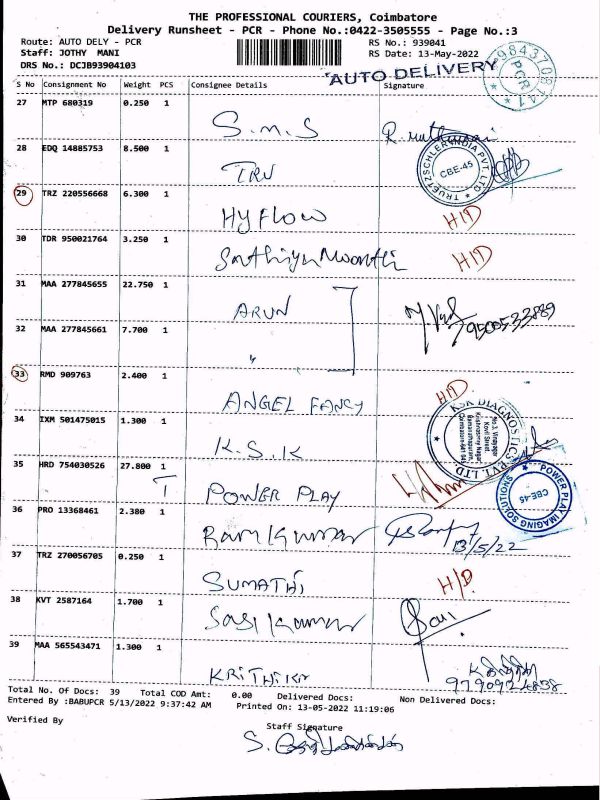 THE PROFESSIONAL COURIERS, Coimbatore
Delivery Runsheet - PCR - Phone No.:0422-3505555 - Page No.:3
Route: AUTO DELY - PCR RS No.: 939041
Staff: JOTHY MANI RS Date: 13-May-2022
DRS No.: DCJB93904103
AUTO DELIVERY
PCR
S No Consignment No Weight PCS Consignee Details Signature
27 MTP 680319 0.250 1 S.M.S
28 EDQ 14885753 8.500 1 TRV
TRUETZSCHLER INDIA PVT. LTD CBE-45
29 TRZ 220556668 6.300 1 HYFLOW H/D
30 TDR 950021764 3.250 1 H/D
31 MAA 277845655 22.750 1 ARUN 9500533889
32 MAA 277845661 7.700 1 "
33 RMD 909763 2.400 1 ANGEL FANCY H/D
34 IXM 501475015 1.300 1 K.S.K
KSK DIAGNOSTICS PVT. LTD.
35 HRD 754030526 27.800 1 T POWER PLAY
POWER PLAY IMAGING SOLUTIONS CBE-45
36 PRO 13368461 2.380 1 Ram Kumar 13/5/22
37 TRZ 270056705 0.250 1 SUMATHI H/D
38 KVT 2587164 1.700 1 Sasi Kumar
39 MAA 565543471 1.300 1 KRITHIKA
Total No. Of Docs: 39 Total COD Amt: 0.00 Delivered Docs: Non Delivered Docs:
Entered By :BABUPCR 5/13/2022 9:37:42 AM Printed On: 13-05-2022 11:19:06
Verified By Staff Signature